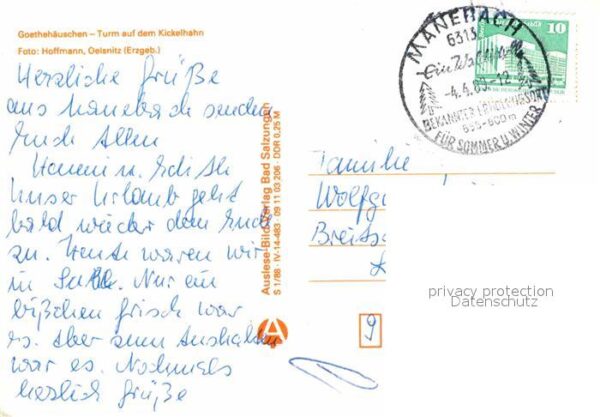 Goethehäuschen – Turm auf dem Kickelhahn
Foto: Hoffmann, Oelsnitz (Erzgeb.)
Herzliche Grüße
aus Manebach senden
Euch Allen
Hanni u. Edith
Unser Urlaub geht
bald wieder dem Ende
zu. Heute waren wir
in Suhl. Nur ein
bißchen frisch war
es. Aber zum Aushalten
war es. Nochmals
herzlich Grüße
Auslese-Bild-Verlag Bad Salzungen
S 1/88 · IV-14-483 09 11 03 206 DDR 0,25 M
MANEBACH
6313
-4.4.89.-12
BEKANNTER ERHOLUNGSORT
FÜR SOMMER U. WINTER
10
Familie
Wolfg
Breits
9
privacy protection
Datenschutz